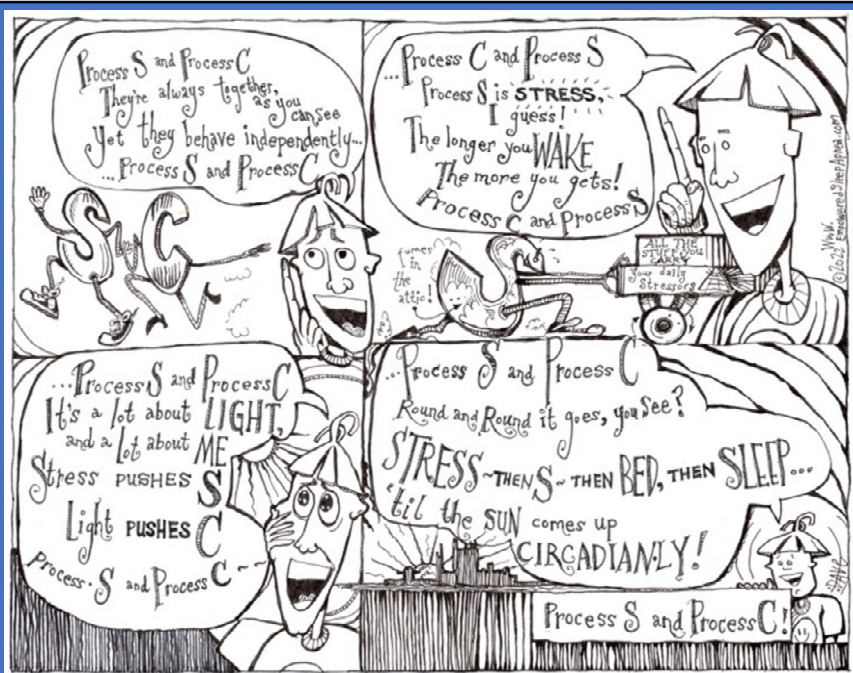 Process S and Process C
They're always together,
as you
can see
Yet they behave independently...
...Process S and Process C
S C
...Process C and Process S
Process S is STRESS,
I guess!
The longer you WAKE
The more you gets!
Process C and Process S
fumes
in
the
attic!
ALL THE
STUFF YOU
CARRY
your daily
Stressors
©2023 www.
EmpoweredSleepApnea.com
...Process S and Process C
It's a lot about LIGHT,
and a lot about ME
Stress PUSHES S
Light PUSHES C
Process S and Process C~~
...Process S and Process C
Round and Round it goes, you see?
STRESS~THEN S~THEN BED, THEN SLEEP...
'til the SUN comes up
CIRCADIAN-LY!
Process S and Process C!